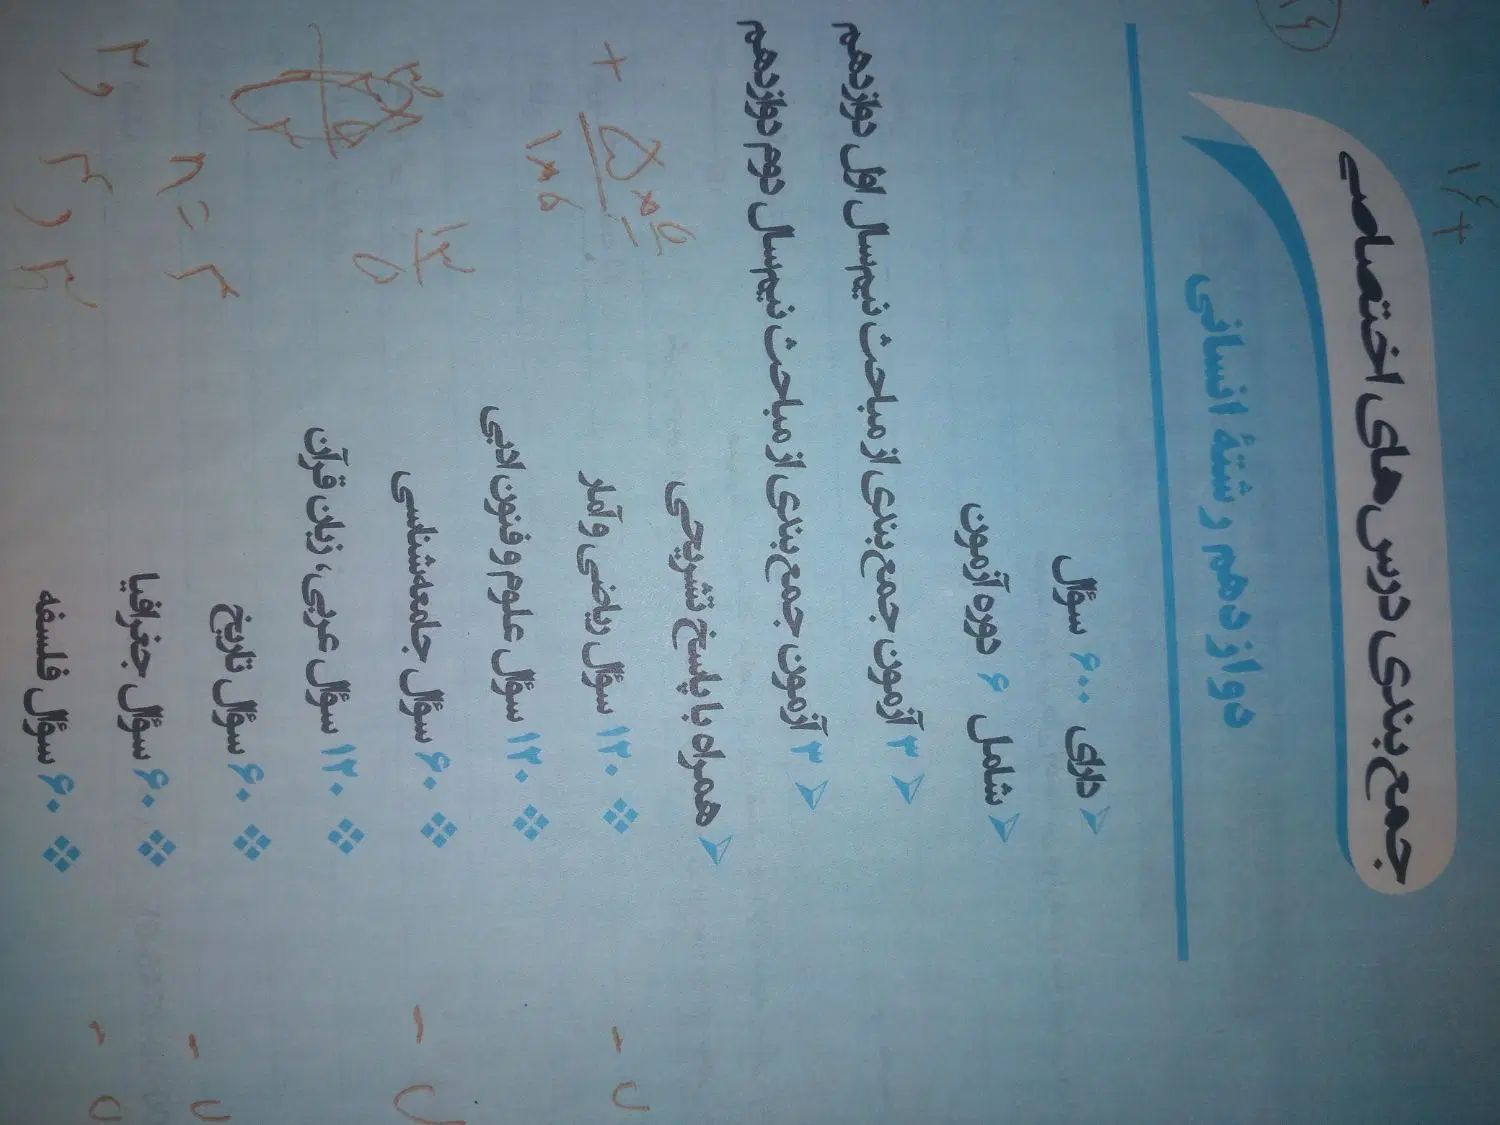 جمع‌بندی درس‌های اختصاصی
دوازدهم رشتهٔ انسانی
دارای ۶۰۰ سؤال
شامل ۶ دوره آزمون
۳ آزمون جمع‌بندی از مباحث نیم‌سال اول دوازدهم
۳ آزمون جمع‌بندی از مباحث نیم‌سال دوم دوازدهم
همراه با پاسخ تشریحی
۱۲۰ سؤال ریاضی و آمار
۱۲۰ سؤال علوم و فنون ادبی
۶۰ سؤال جامعه‌شناسی
۱۲۰ سؤال عربی، زبان قرآن
۶۰ سؤال تاریخ
۶۰ سؤال جغرافیا
۶۰ سؤال فلسفه